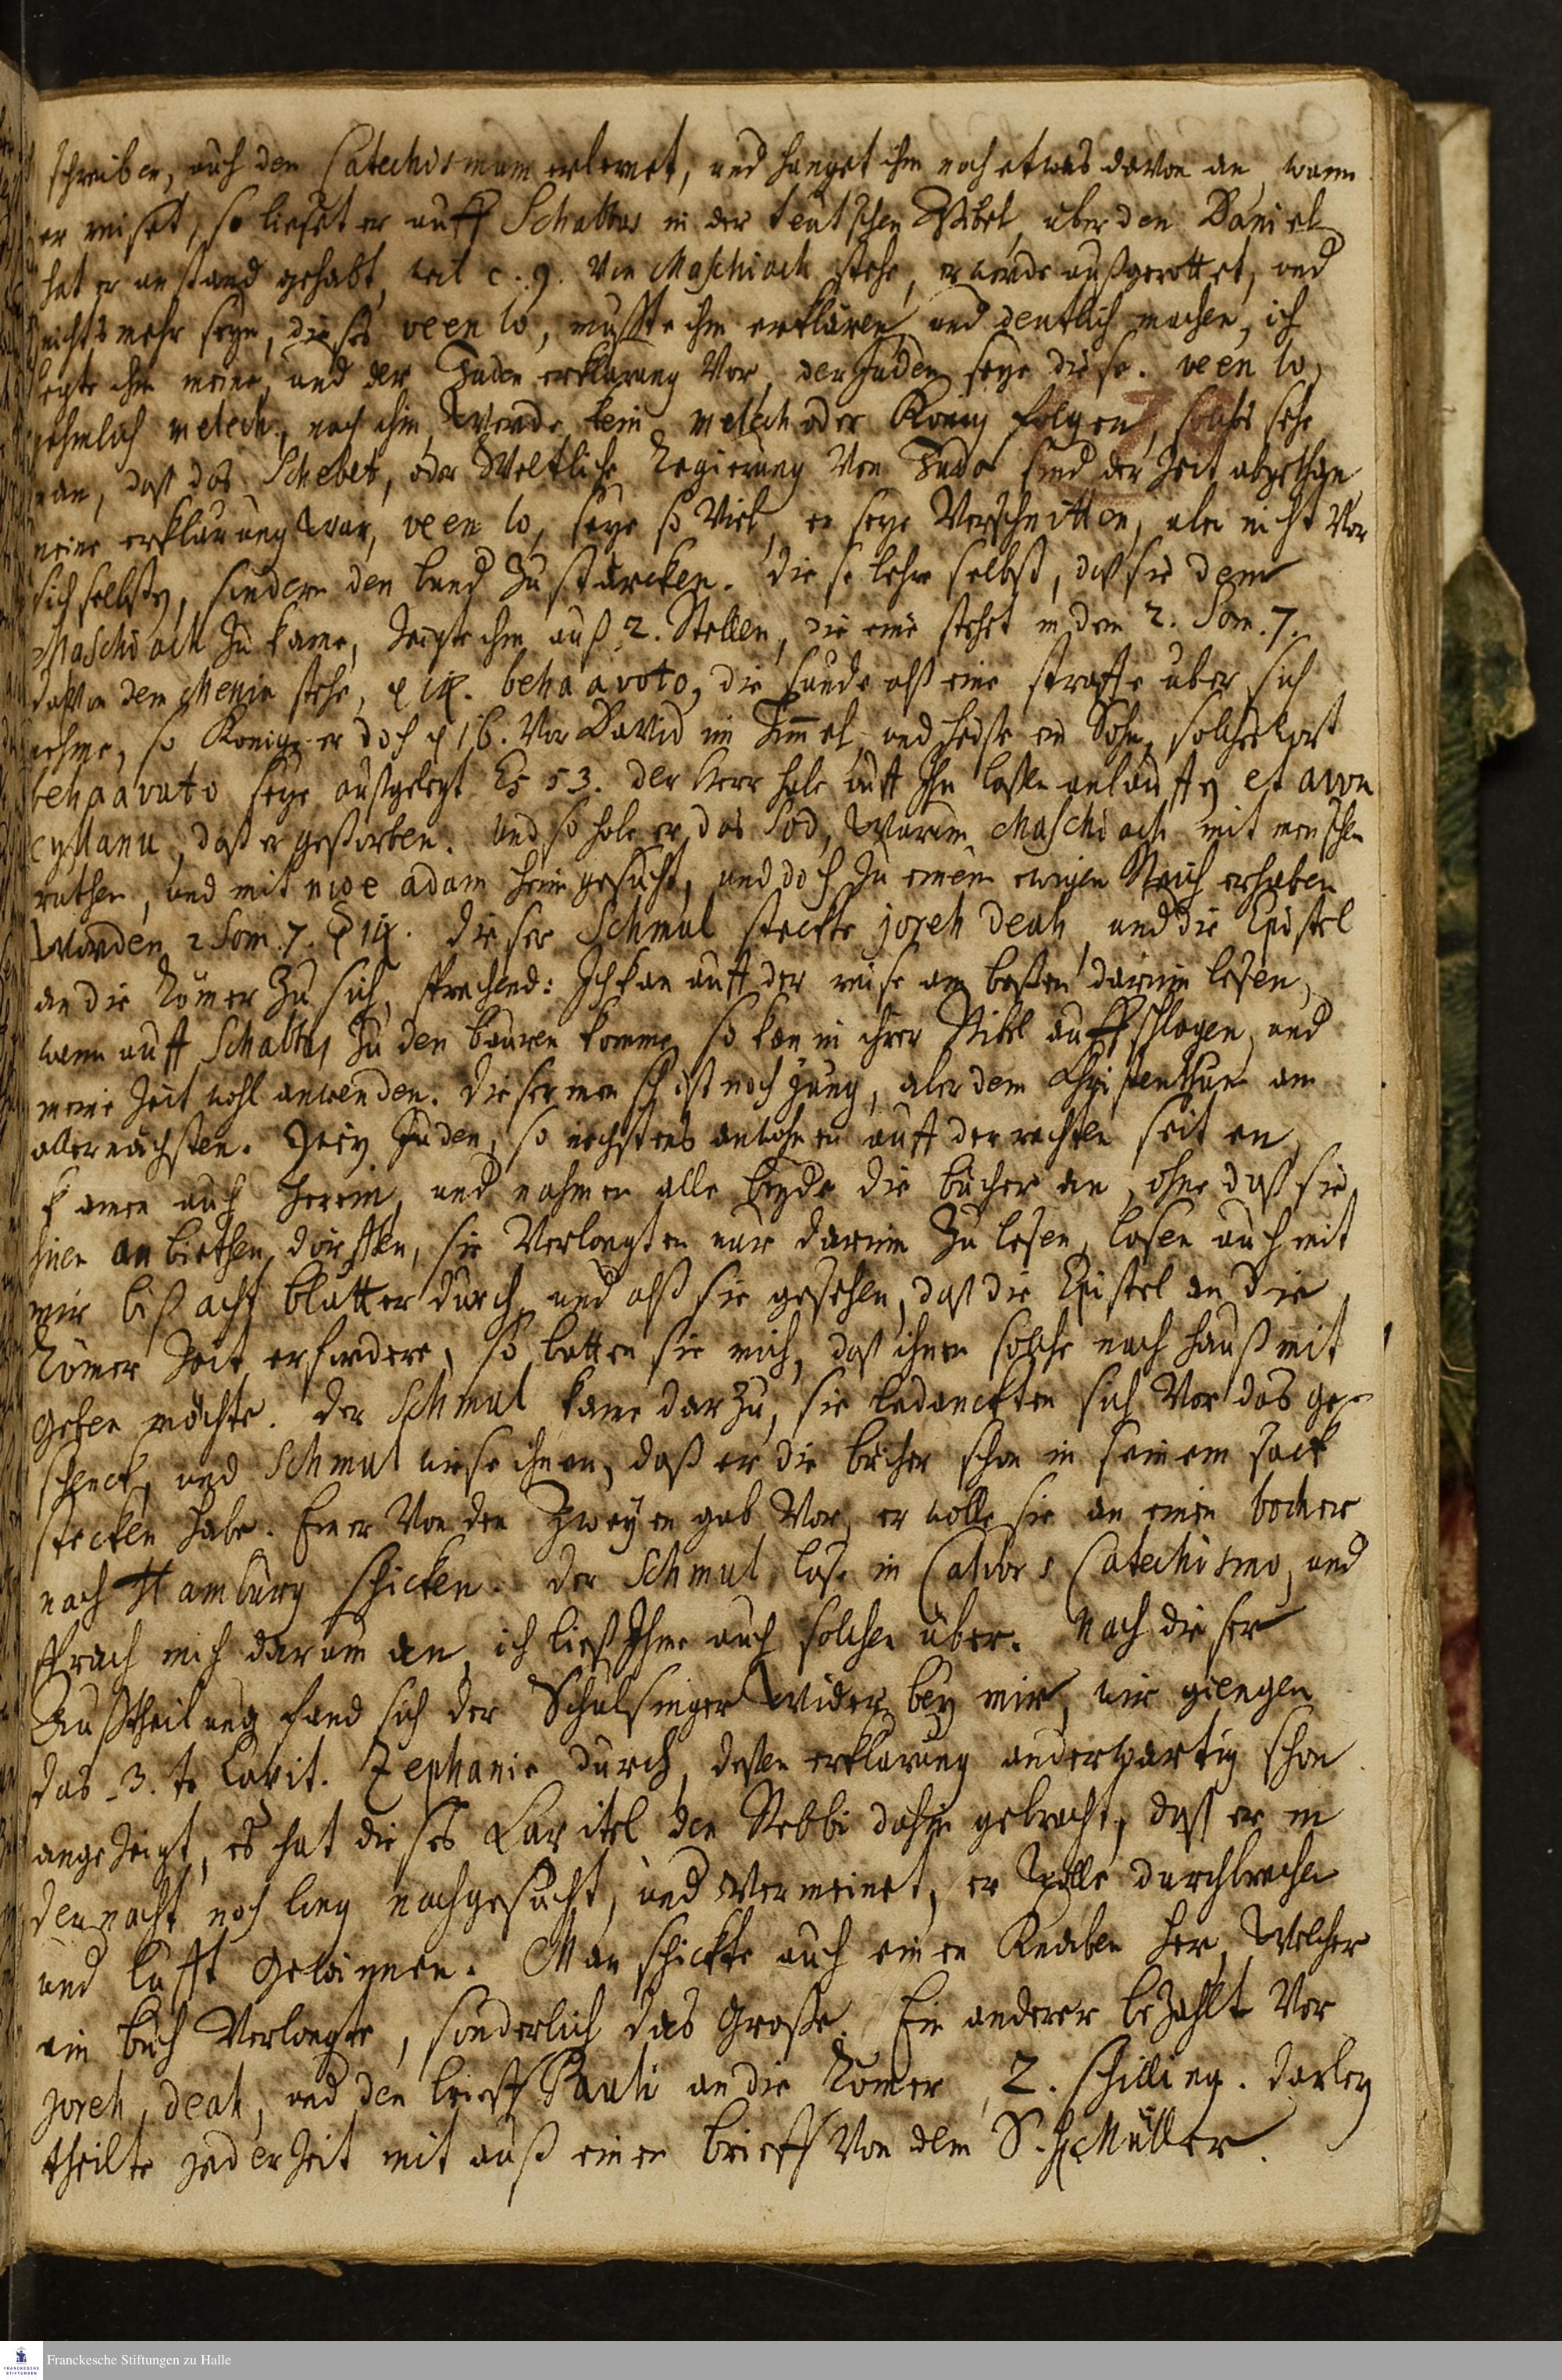 schreiben, auch den Catechismum erlernet, und hanget ihm noch etwas davon an, wann
er reiset, so lieset er auff Schabbas in der teutschen Bibel, uber den Daniel
hat er anstand gehabt, weil c. 9. von Maschiach stehe, er werde außgerottet, und
nichts mehr seyn, dieses veen lo, musste ihm erklären, und deutlich machen, ich
legte ihm meine, und der Juden erklarung vor, der Juden seye diese. veen lo,
nehmlich melech, nach ihm werde kein melech oder König folgen, solches sehe
man, daß das Schebet, oder Weltliche Regierung von Juda sind der Zeit abgethan
meine erklärung war, veen lo, seye so viel, er seye verschnitten, aber nicht vor
sich selbsten, sondern den bund zu stärcken. diese lehre selbst, daß sie dem
Maschiach zu kame, zeigte ihm auß 2. Stellen, die eine stehet in dem 2. Sam. 7.
da von dem Messia stehe, 14. behaavoto, die sünde alß eine straffe uber sich
nehme, so Konige er doch 16. vor David im Himmel, und heise ein Sohn, solches wort
behaavuto seye außgelegt Es 53. der Herr habe auff Ihn laßen anlauffen et avon
cyllanu, daß er gestorben. und so habe er das Sod, warum Maschiach mit menschen
ruthen, und mit nige adam heimgesucht, und doch zu einem ewigen Reich erhaben
worden 2 Sam. 7. 14. dieser Schmul steckte joreh deah, und die Epistel
an die Römer zu sich, sprechend: Ich kan auff der reise am besten darinn lesen,
wann auff Schabbas zu den bauren komme so kan in ihrer Bibel auffschlagen, und
meine Zeit wohl anwenden. dieser mensch ist noch jung, aber dem Christenthum am
allernächsten. Zwey Juden, so nechstens anwohnen auff der rechten seiten,
kamen auch herein, und nahmen alle beyde die bücher an, ohne daß sie
ihnen anbiethen dörffen, sie verlangten nur darinn zu lesen, lasen auch mit
mir biß acht blätter durch, und alß sie gesehen, daß die Epistel an die
Römer Zeit erfordere, so batten sie mich, daß ihnen solche nach hauß mit
geben möchte. der Schmul kame darzu, sie bedanckten sich vor das ge-
schenck, und Schmul wiese ihnen, daß er die bücher schon in seinem sack
stecken habe. Einer von den Zweyen gab vor, er wolle sie an einen bocher
nach Hamburg schicken. der Schmul lase in Calvörs Catechismo, und
sprach mich darum an, ich ließ Ihme auch solchen über. Nach dieser
Außtheilung fand sich der Schulsinger wider bey mir, wir giengen
das 3.te Capit. Zephaniæ durch, deßen erklarung anderwärtig schon
angezeigt, es hat dieses Capitel den Rebbi dahin gebracht, daß er in
der nacht noch lang nachgesucht, und vermeinet, er wolle durchbrechen
und lufft gewinnen. Man schickte auch einen Knaben her, welcher
ein buch verlangte, sonderlich das Große. Ein anderer bezahlt vor
joreh deah, und den brieff Pauli an die Römer, 2. schilling. darbey
theilte jederzeit mit auß einen brieff von dem S. H. Müller.
Franckesche Stiftungen zu Halle